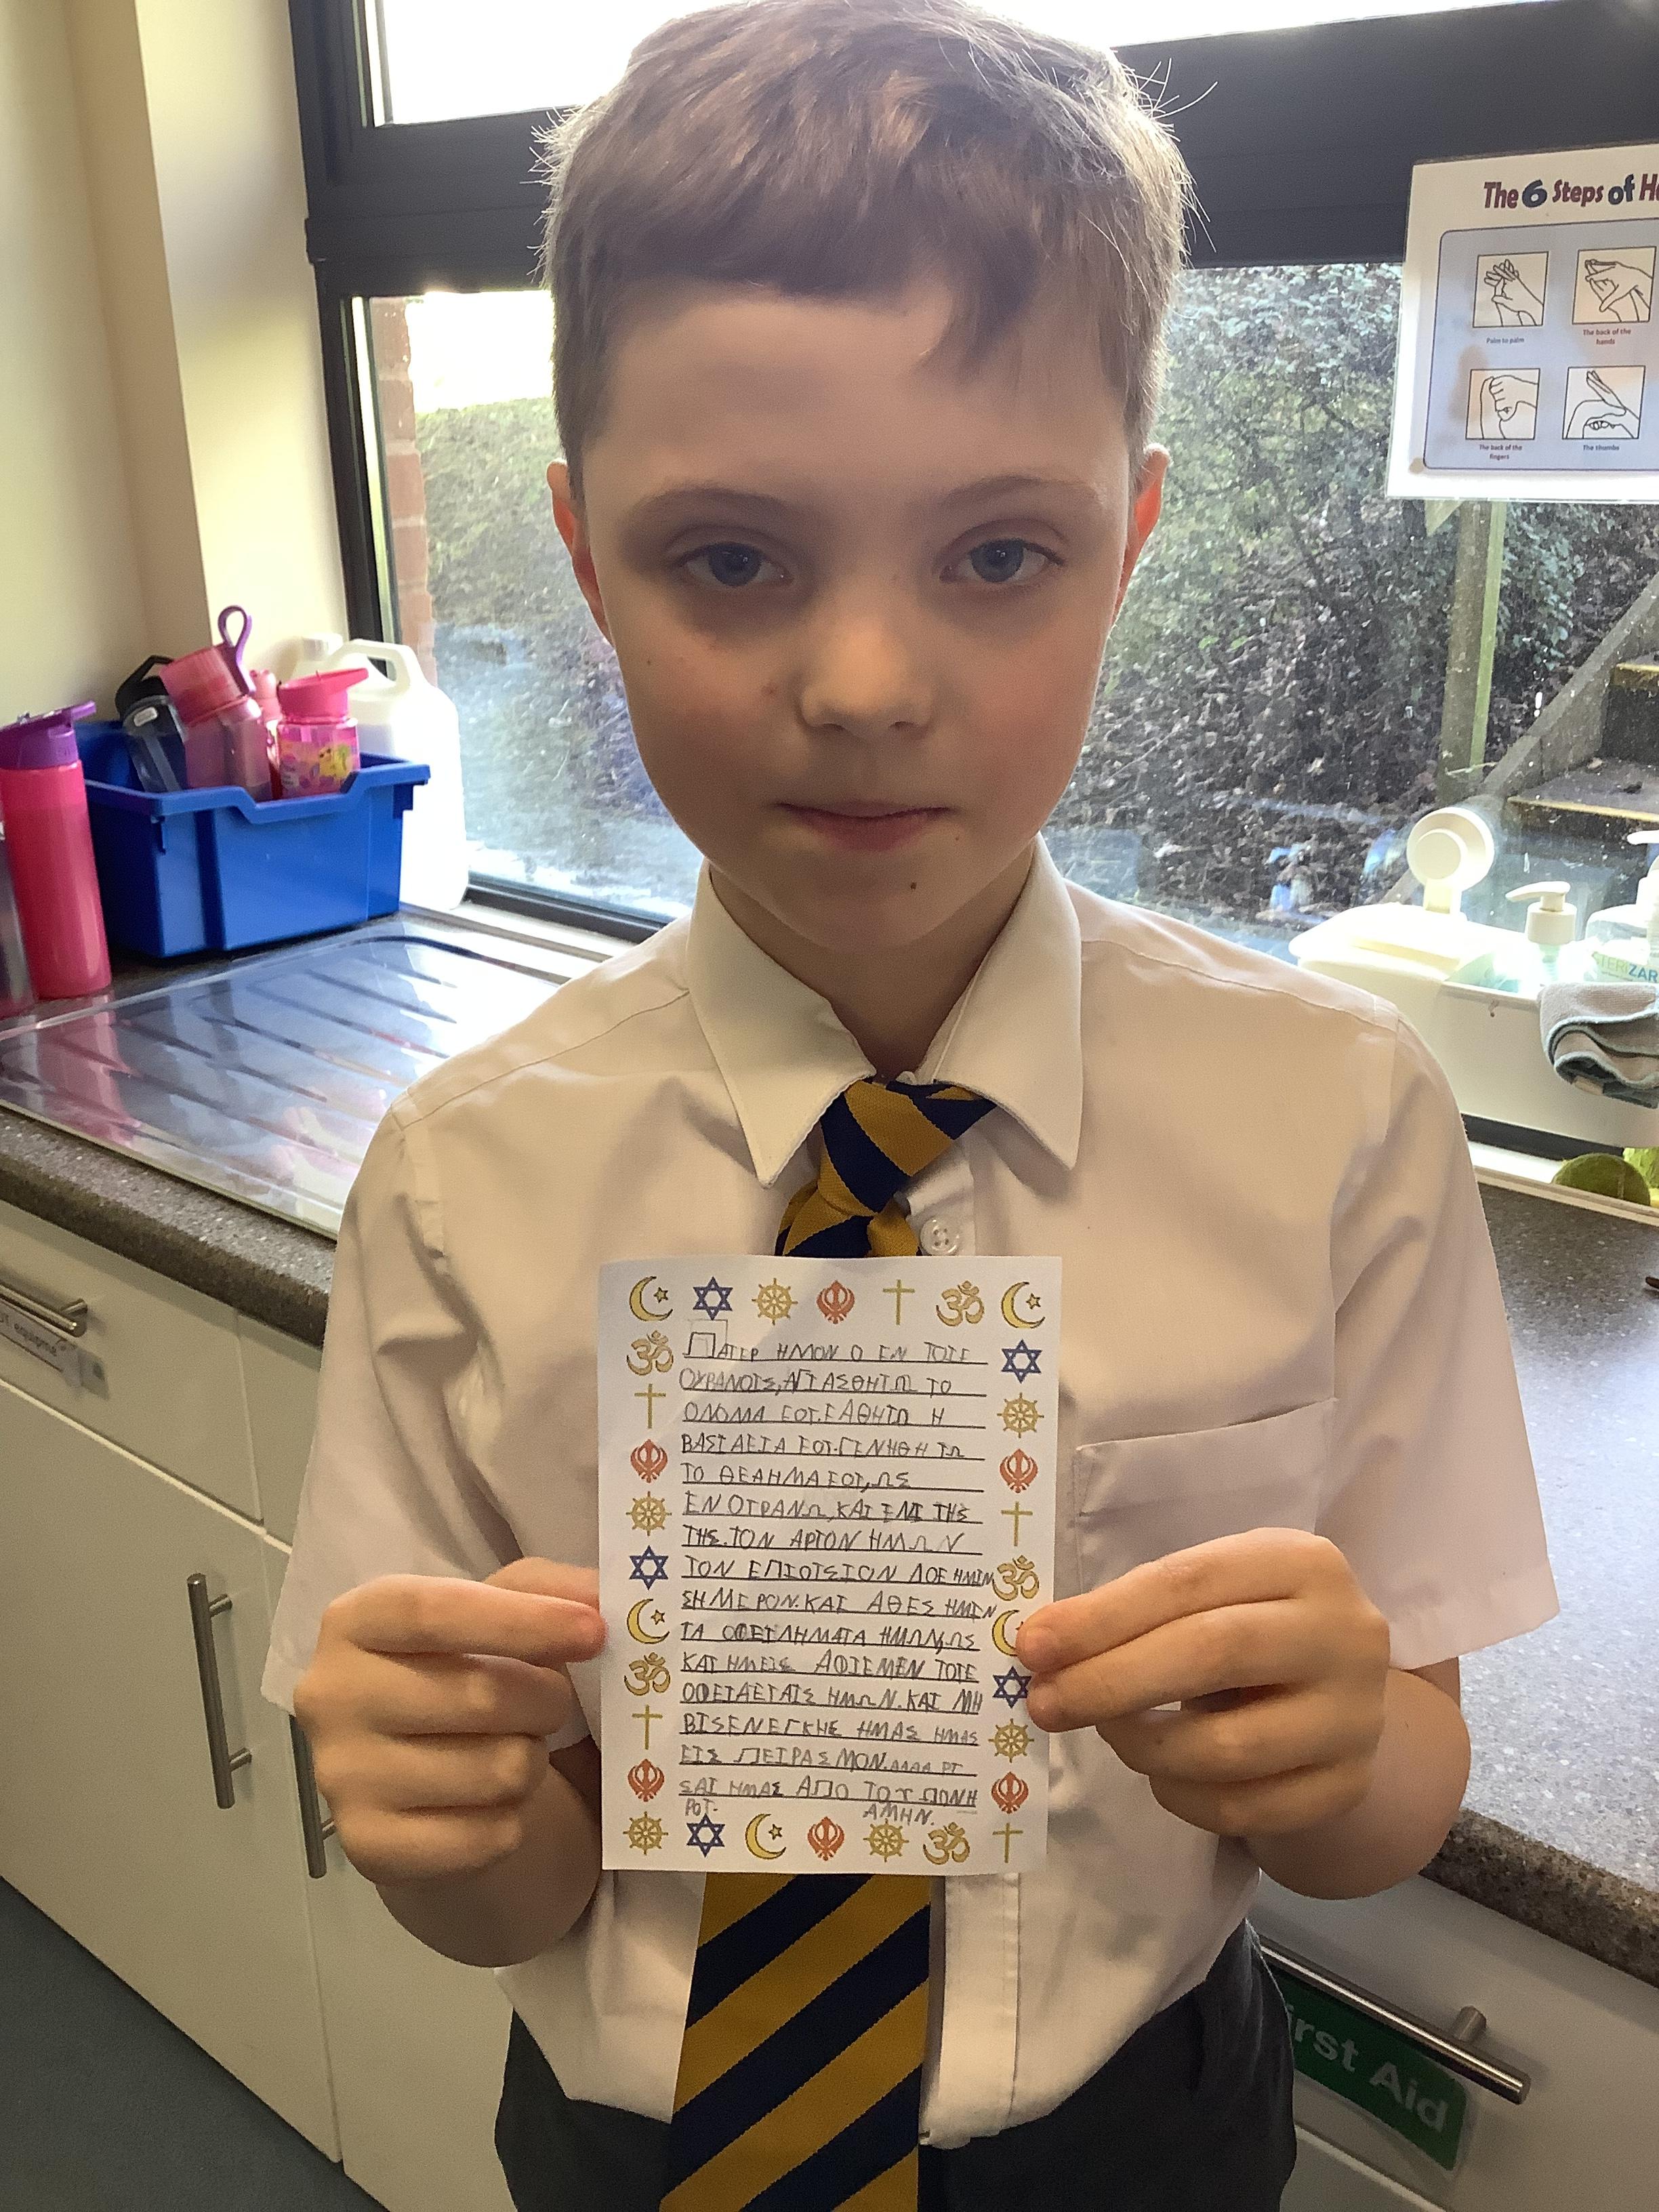 The 6 Steps of H
Palm to palm
The back of the hands
The back of the fingers
The thumbs
STERIZAR
ΠΑΤΕΡ ΗΜΟΝ Ο ΕΝ ΤΟΙΣ
ΟΥΡΑΝΟΙΣ, ΑΓΙΑΣΘΗΤΩ ΤΟ
ΟΝΟΜΑ ΣΟΤ. ΕΛΘΗΤΩ Η
ΒΑΣΙΛΕΙΑ ΣΟΤ. ΓΕΝΗΘΗΤΩ
ΤΟ ΘΕΛΗΜΑ ΣΟΤ, ΩΣ
ΕΝ ΟΤΡΑΝΩ, ΚΑΙ ΕΠΙ ΤΗΣ
ΤΗΣ. ΤΟΝ ΑΡΤΟΝ ΗΜΩΝ
ΤΟΝ ΕΠΙΟΤΣΙΟΝ ΔΟΣ ΗΜΙΝ
ΣΗΜΕΡΟΝ. ΚΑΙ ΑΘΕΣ ΗΜΙΝ
ΤΑ ΟΦΕΙΛΗΜΑΤΑ ΗΜΩΝ, ΩΣ
ΚΑΙ ΗΜΕΙΣ ΑΦΙΕΜΕΝ ΤΟΙΣ
ΟΦΕΙΛΕΤΑΙΣ ΗΜΩΝ. ΚΑΙ ΜΗ
ΒΙΣΕΝΕΓΚΗΣ ΗΜΑΣ ΗΜΑΣ
ΕΙΣ ΠΕΙΡΑΣΜΟΝ. ΑΛΛΑ ΡΤ
ΣΑΙ ΗΜΑΣ ΑΠΟ ΤΟΥ ΠΟΝΗ
ΡΟΤ. ΑΜΗΝ.
irst Aid